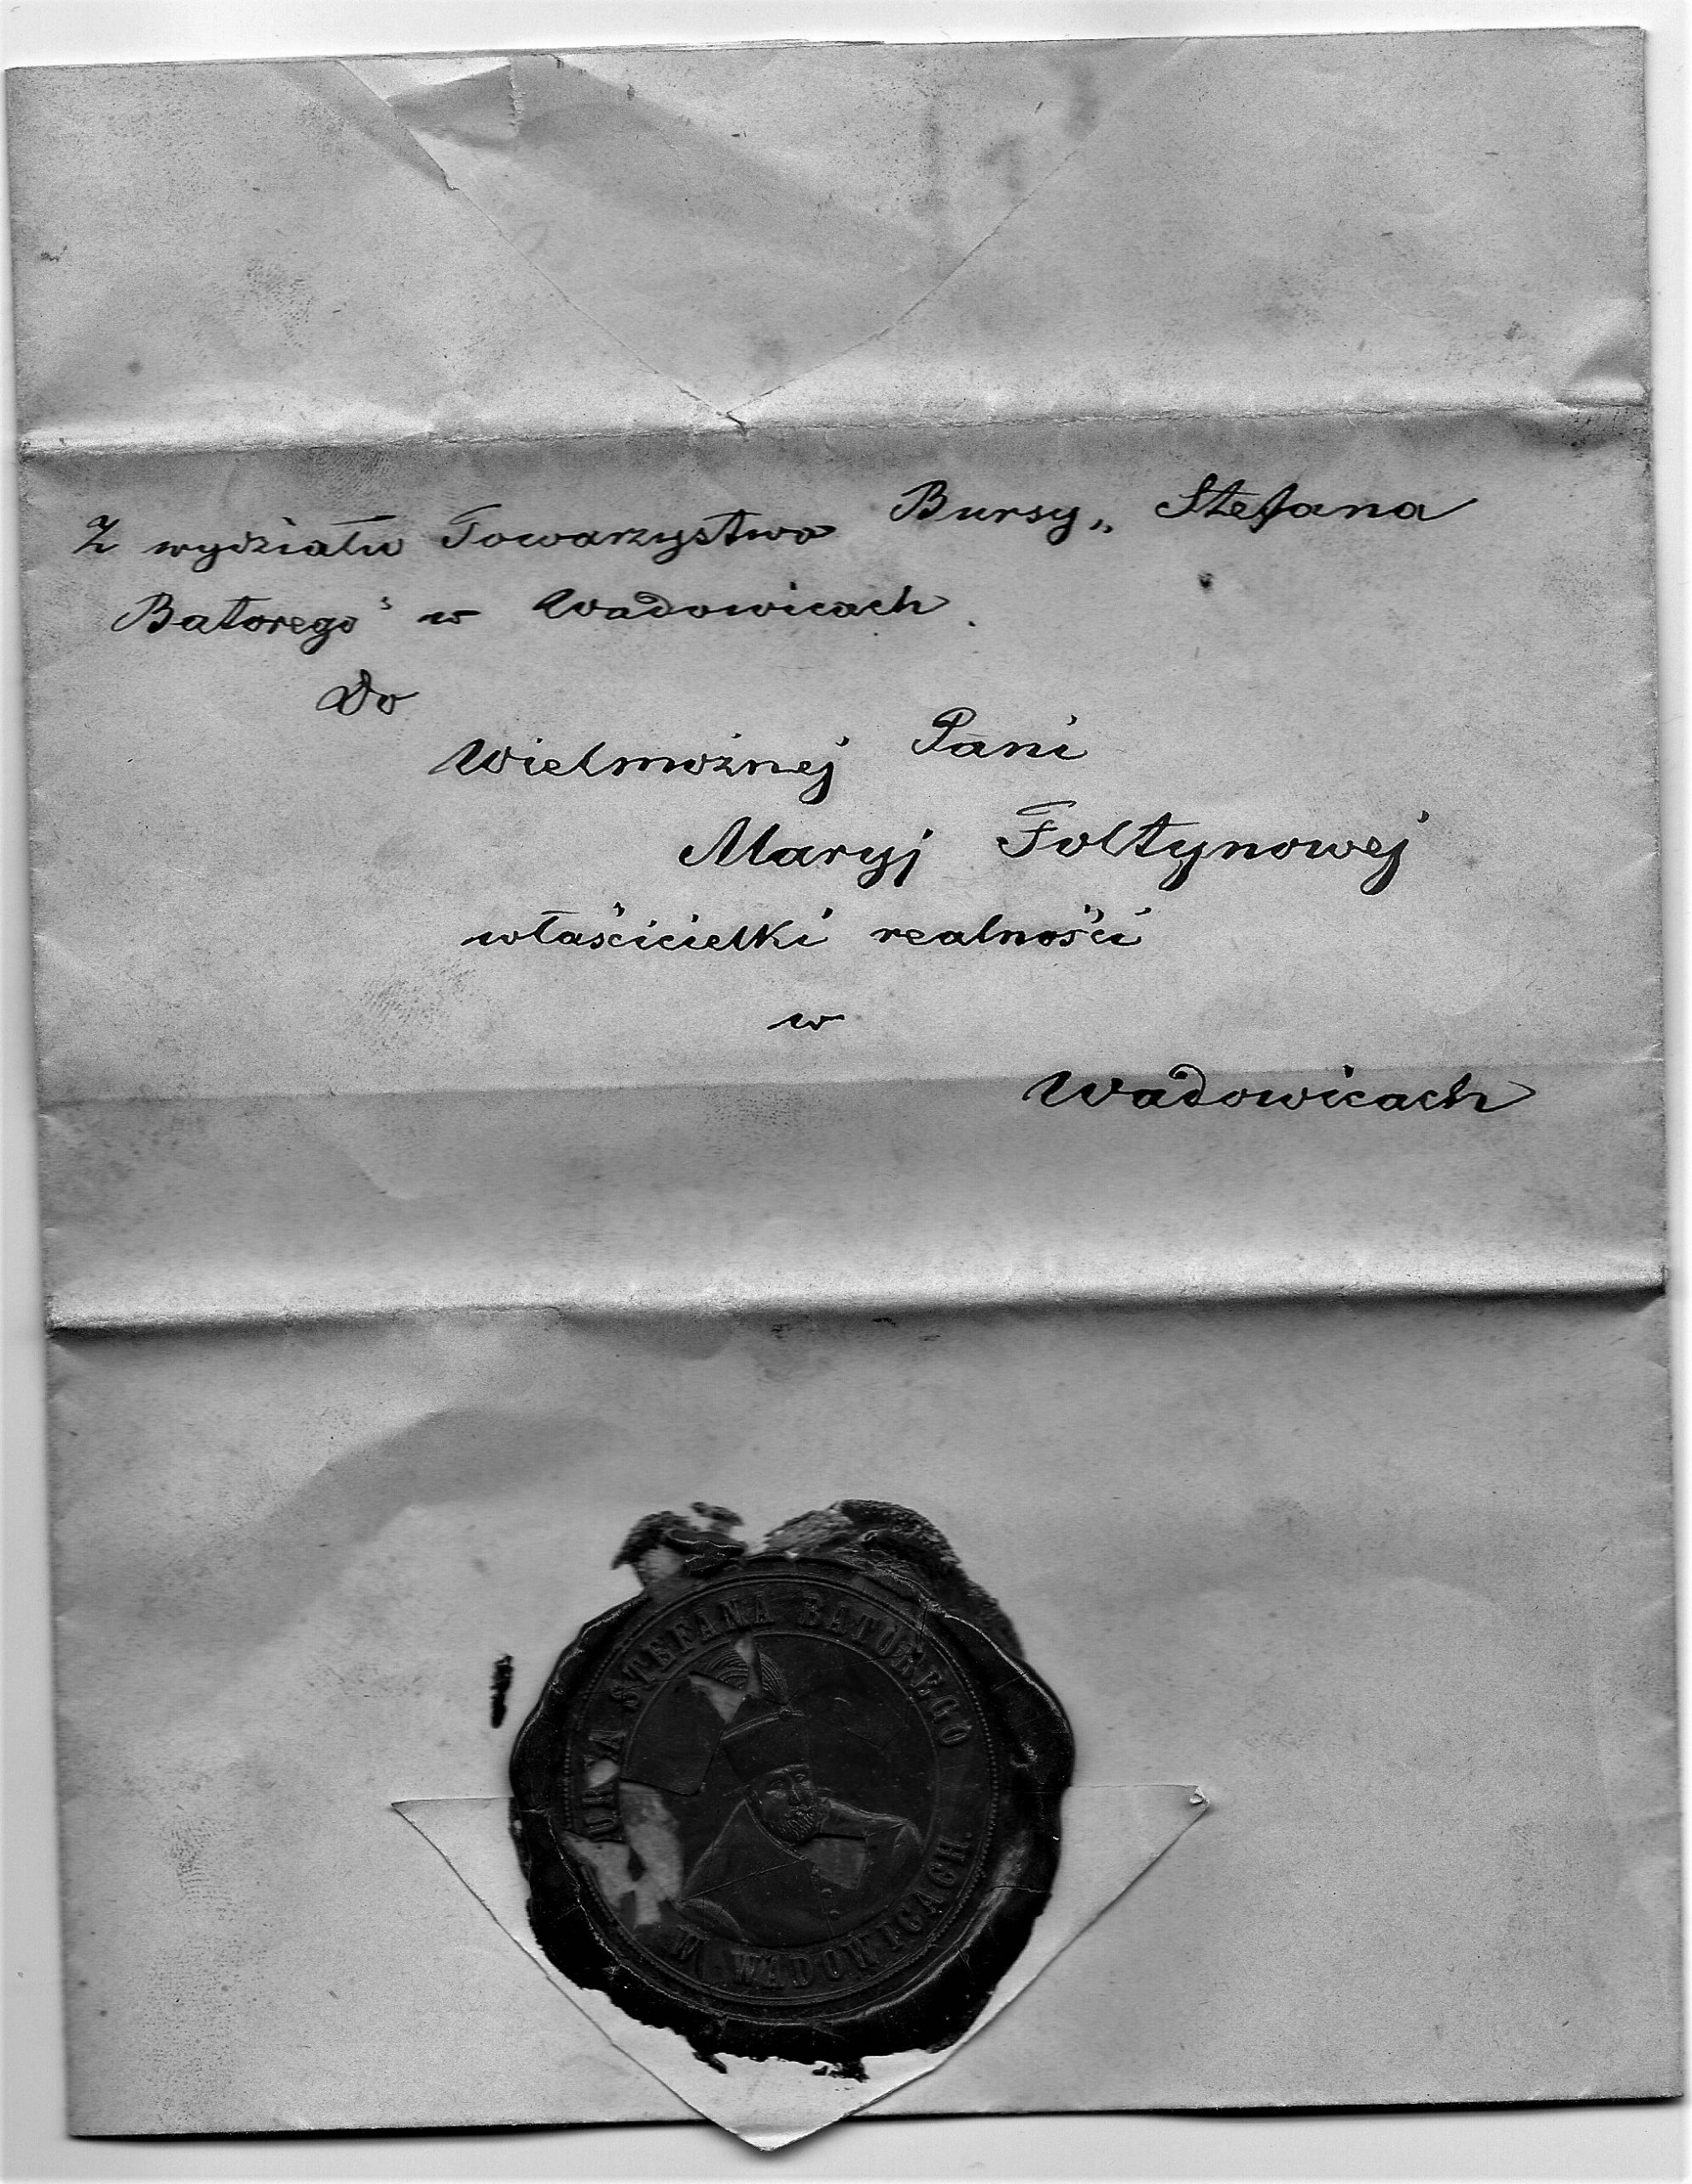 Z wydziału Towarzystwa Bursy „Stefana
Batorego" w Wadowicach.
Do
Wielmożnej Pani
Maryj Foltynowej
właścicielki realności
w
Wadowicach
URSA STEFANA BATOREGO
W WADOWICACH.